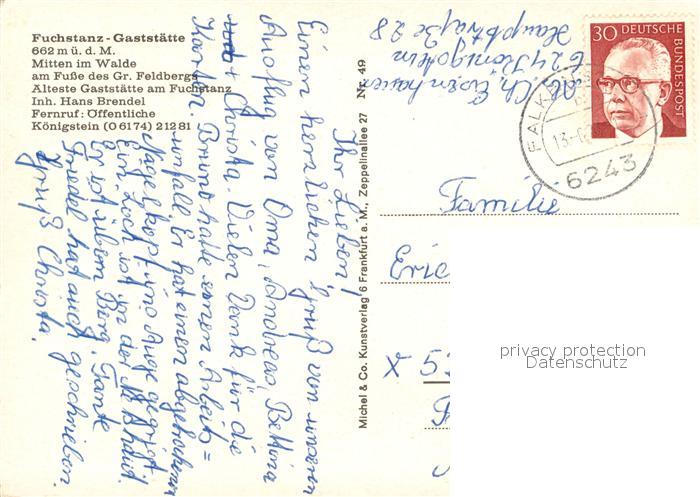 Fuchstanz - Gaststätte
662 m ü. d. M.
Mitten im Walde
am Fuße des Gr. Feldbergs
Älteste Gaststätte am Fuchstanz
Inh. Hans Brendel
Fernruf: Öffentliche
Königstein (0 61 74) 2 12 81
Ihr Lieben!
Einen herzlichen Gruß von unserm
Ausflug von Oma, Andreas, Bettina
+ Christa. Vielen Dank für die
Karten. Bruno hatte einen Arbeits=
unfall. Er hat einen abgebrochenen
Nagelkopf ins Auge gekriegt.
Ein Loch ist in der Netzhaut.
Er ist überm Berg. Tante
Friedel hat auch geschrieben.
Gruß Christa.
Michel & Co. Kunstverlag 6 Frankfurt a. M., Zeppelinallee 27 Nr. 49
Abs. Ch. Eisenhauer
624 Königstein
Hauptstraße 28
30 DEUTSCHE
BUNDESPOST
FALK
13.-
6243
Familie
Eric
x 5
privacy protection
Datenschutz